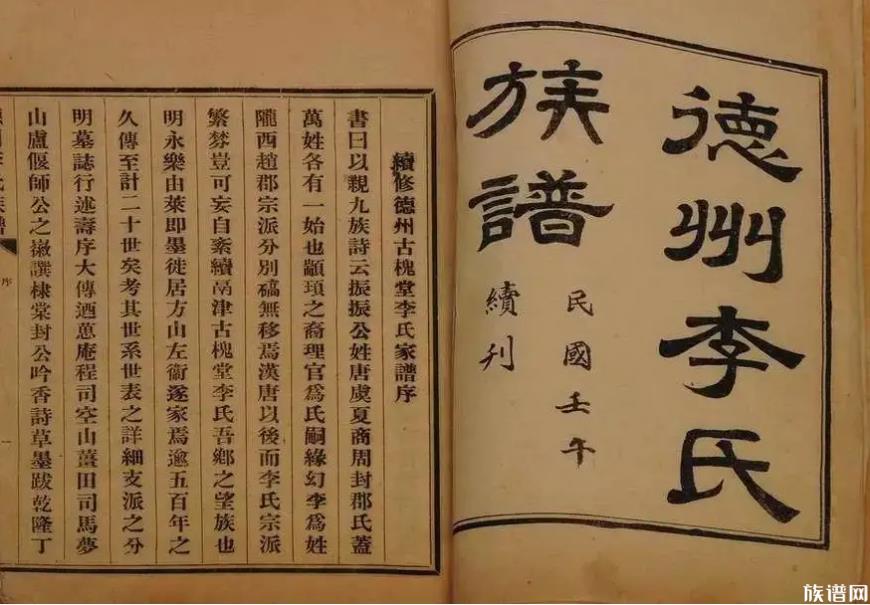 德州李氏
族譜
民國壬午
續刊
續修德州古槐堂李氏家譜序
書曰以親九族詩云振振公姓唐虞夏商周封郡氏蓋
萬姓各有一始也顓頊之裔理官爲氏嗣緣幻李爲姓
隴西趙郡宗派分別礄無移焉漢唐以後而李氏宗派
繁棼豈可妄自紊續鬲津古槐堂李氏吾鄉之望族也
明永樂由萊即墨徙居方山左衞遂家焉逾五百年之
久傳至計二十世矣考其世系世表之詳細支派之分
明墓誌行述壽序大傳迺蒽庵程司空山薑田司馬夢
山盧偃師公之徽譔棣棠封公吟香詩草墨跋乾隆丁
序
一
族谱网